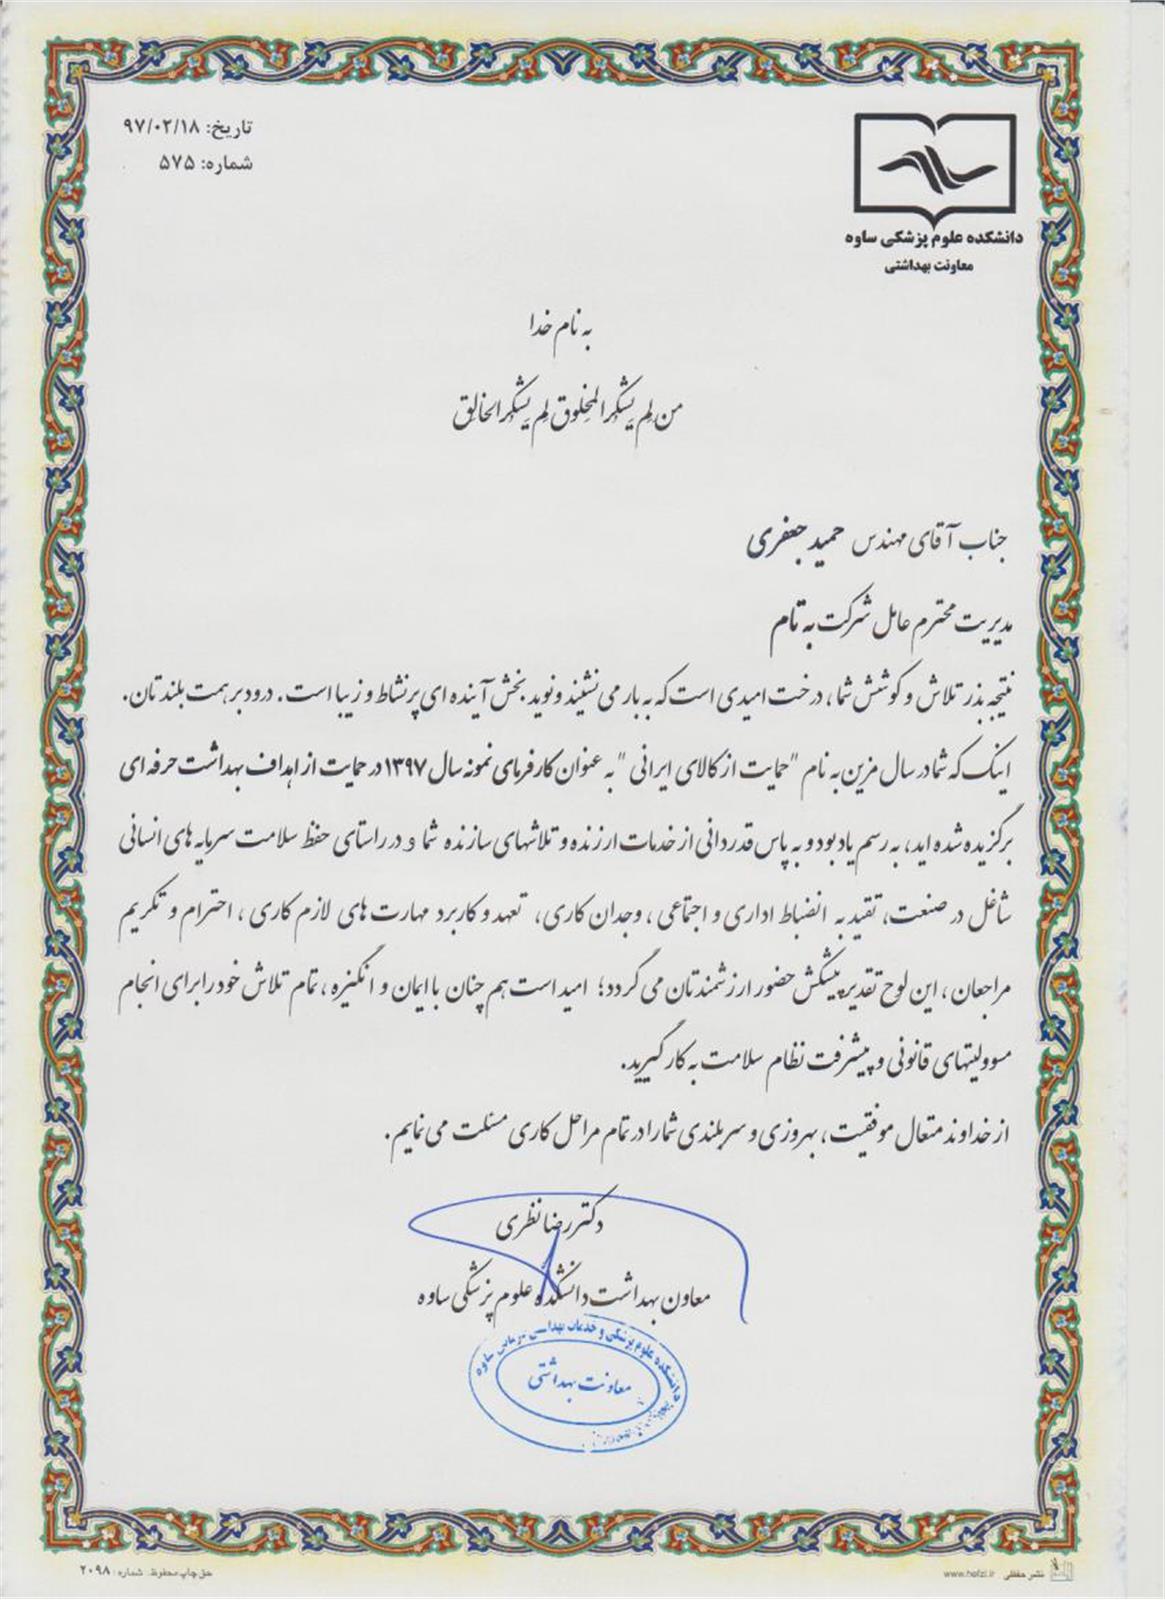 تاریخ: ۹۷/۰۲/۱۸
شماره: ۵۷۵
دانشکده علوم پزشکی ساوه
معاونت بهداشتی
به نام خدا
من لم یشکر المخلوق لم یشکر الخالق
جناب آقای مهندس حمید جعفری
مدیریت محترم عامل شرکت به تام
نتیجه بذر تلاش و کوشش شما، درخت امیدی است که به بار می نشیند و نوید بخش آینده ای پر نشاط و زیبا است. درود بر همت بلندتان.
اینک که شما در سال مزین به نام "حمایت از کالای ایرانی" به عنوان کارفرمای نمونه سال ۱۳۹۷ در حمایت از اهداف بهداشت حرفه ای
برگزیده شده اید، به رسم یادبود و به پاس قدردانی از خدمات ارزنده و تلاشهای سازنده شما و در راستای حفظ سلامت سرمایه های انسانی
شاغل در صنعت، تقید به انضباط اداری و اجتماعی، وجدان کاری، تعهد و کاربرد مهارت های لازم کاری، احترام و تکریم
مراجعان، این لوح تقدیر پیشکش حضور ارزشمندتان می گردد؛ امید است هم چنان با ایمان و انگیزه، تمام تلاش خود را برای انجام
مسوولیتهای قانونی و پیشرفت نظام سلامت به کار گیرید.
از خداوند متعال موفقیت، بهروزی و سربلندی شما را در تمام مراحل کاری مسئلت می نمایم.
دکتر رضا نظری
معاون بهداشت دانشکده علوم پزشکی ساوه
دانشکده علوم پزشکی و خدمات بهداشتی درمانی ساوه
معاونت بهداشتی
حق چاپ محفوظ. شماره: ۲۰۹۸
نشر حفظی www.hefzi.ir